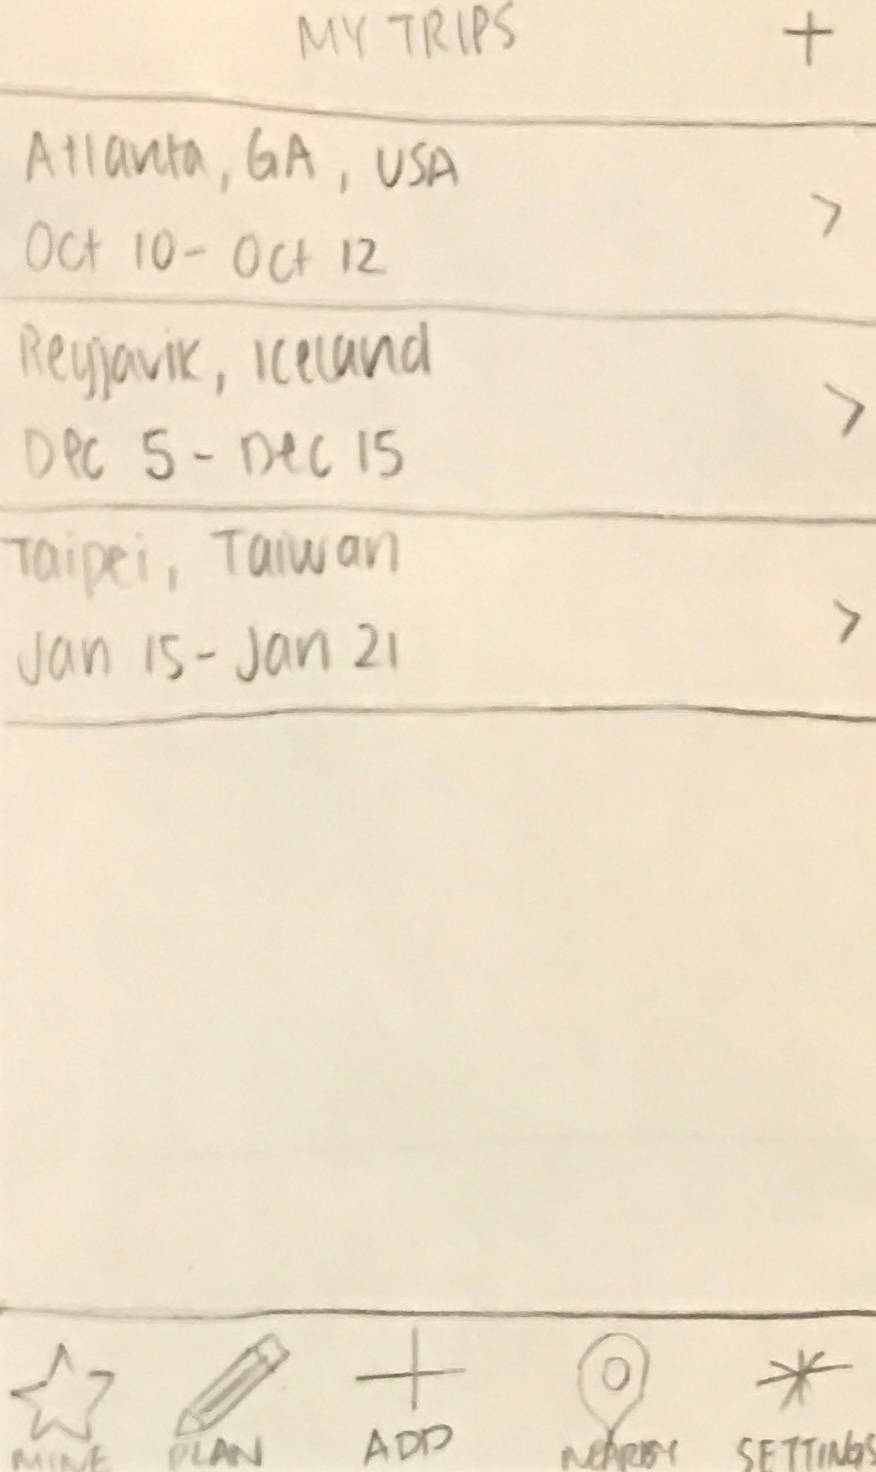 MY TRIPS +
Atlanta, GA, USA >
Oct 10 - Oct 12
Reyjavik, Iceland >
Dec 5 - Dec 15
Taipei, Taiwan >
Jan 15 - Jan 21
MINE PLAN ADD NEARBY SETTINGS